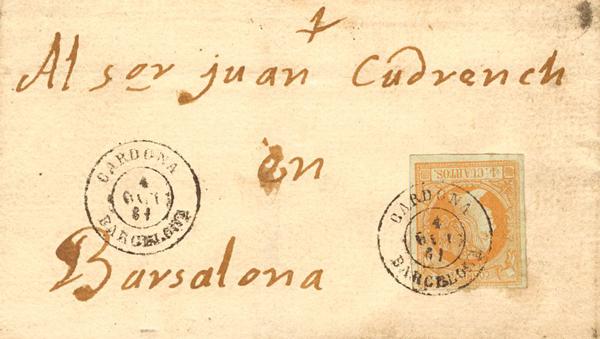 Al sor juan Cudrench
en
Barsalona
CARDONA
4
61
BARCELONA
4 CUARTOS.
CARDONA
4
61
BARCELONA